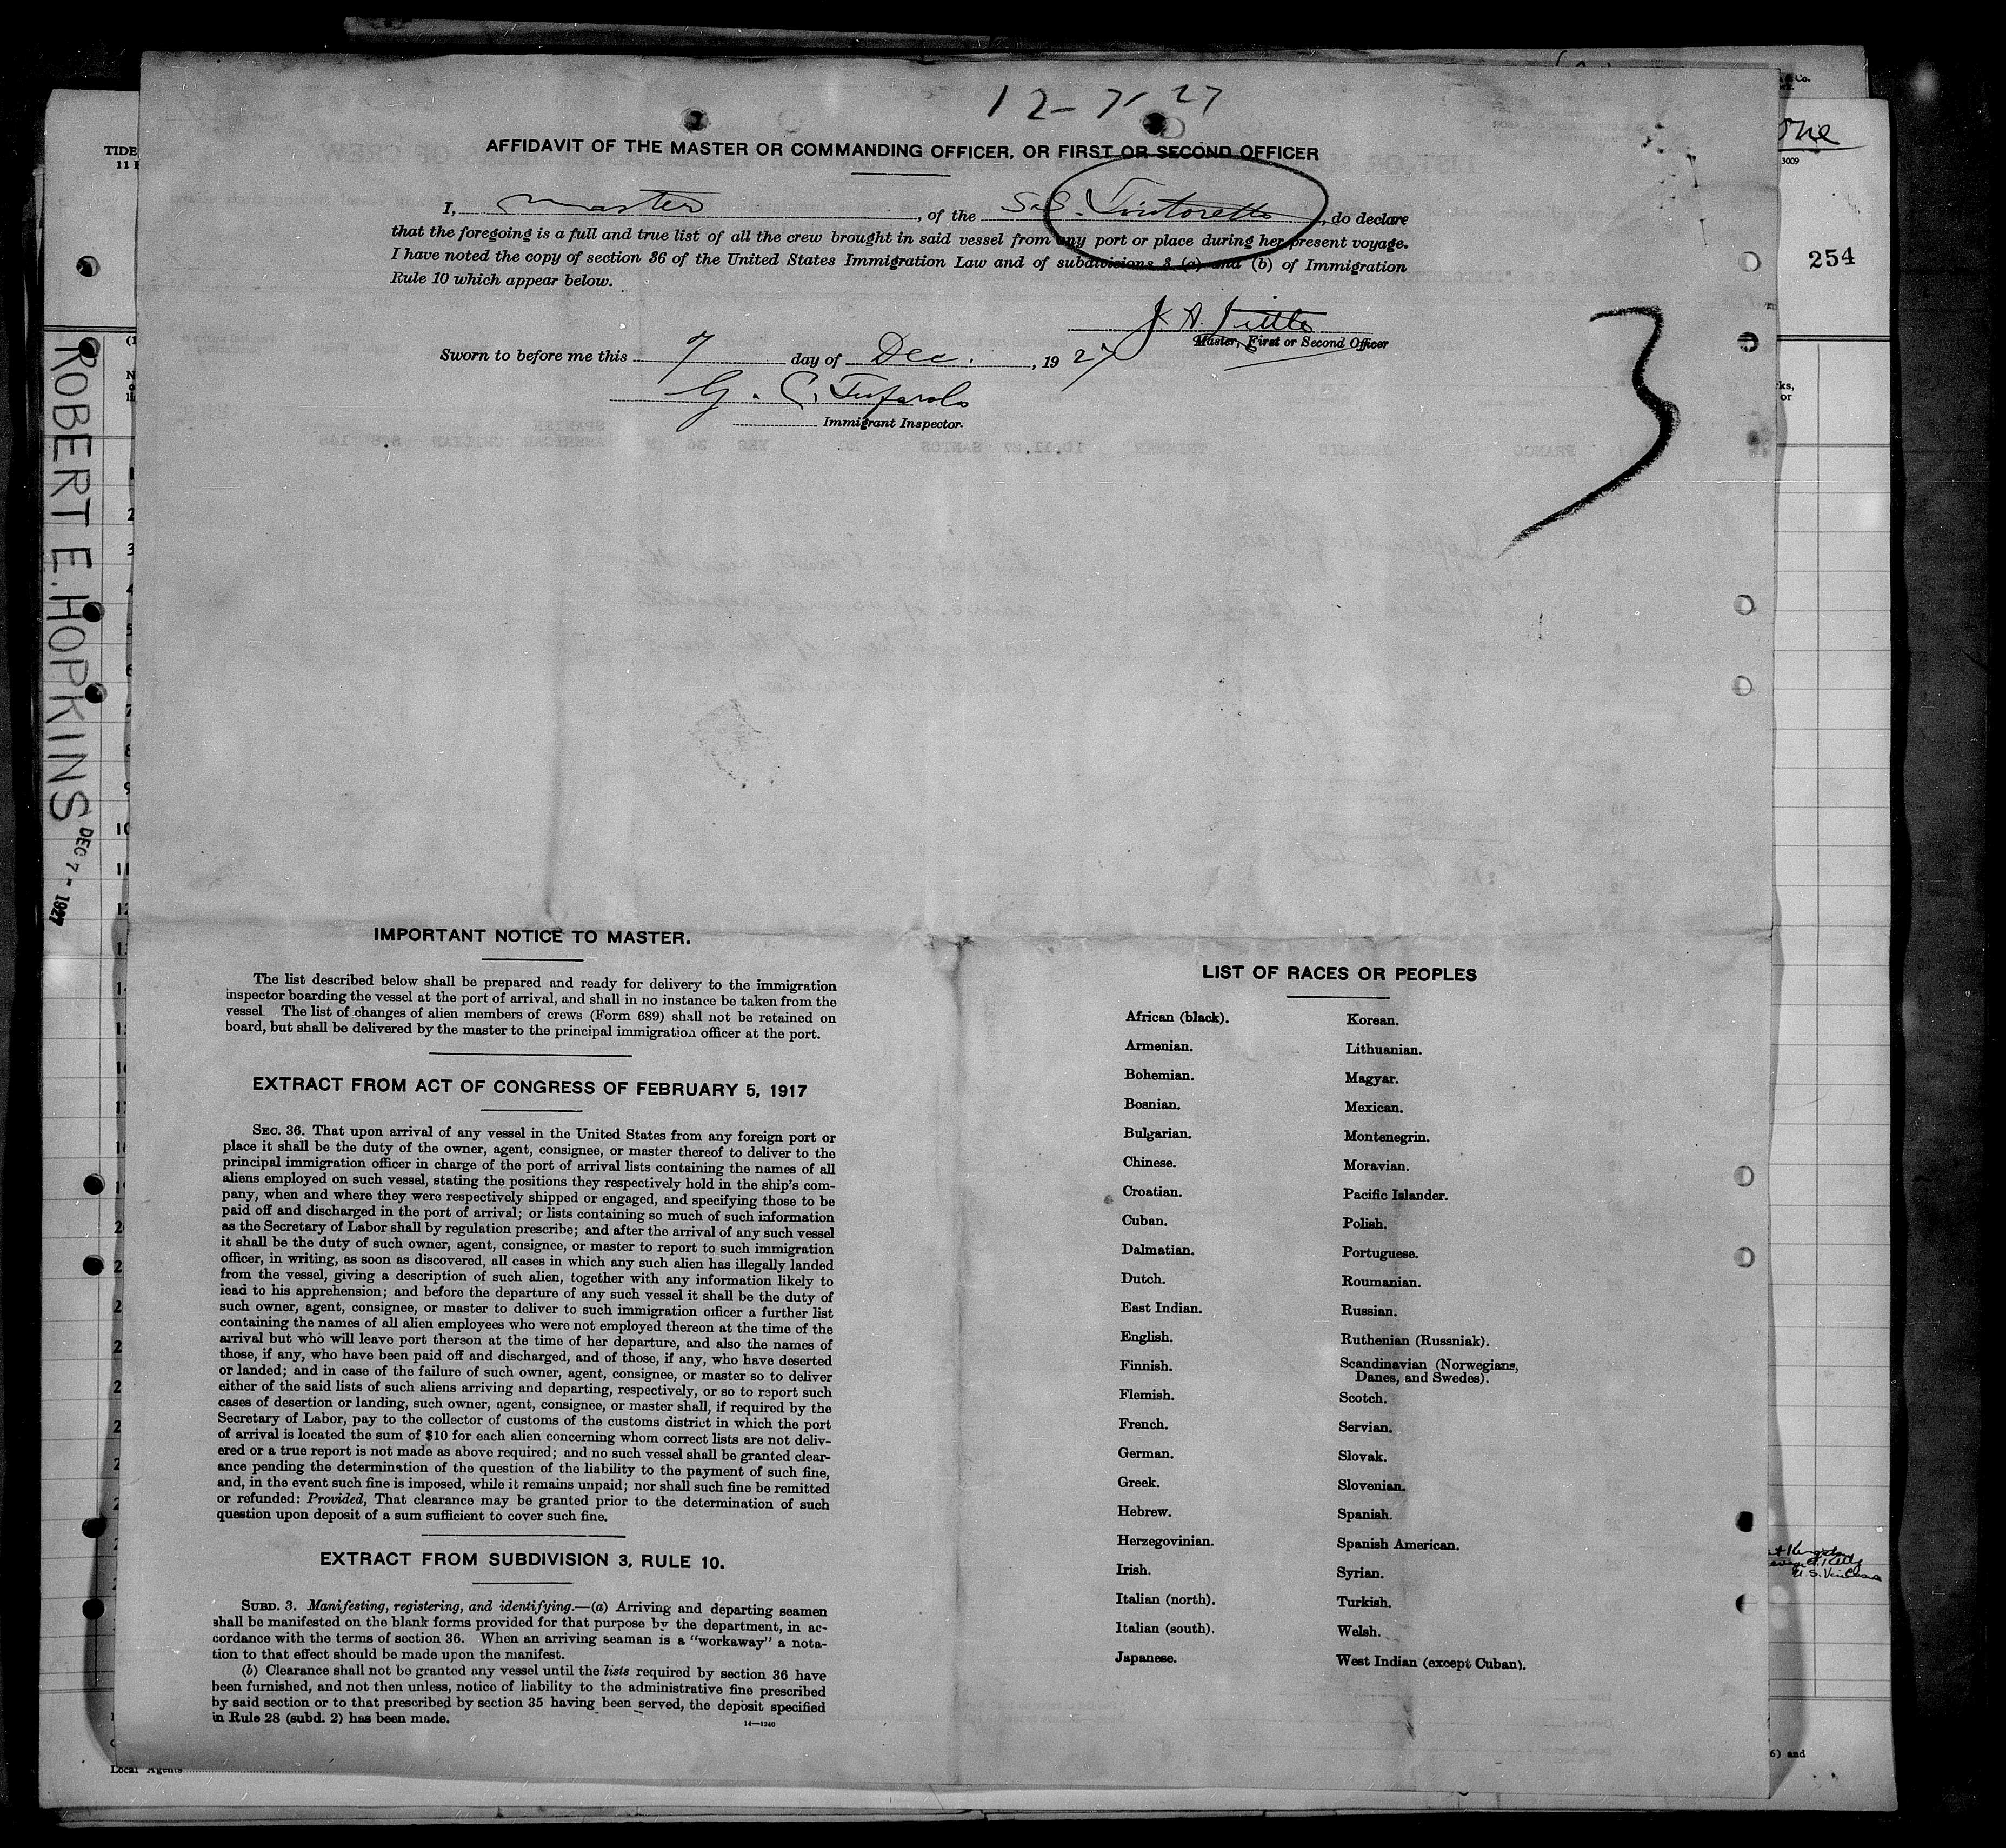 12-7-27
AFFIDAVIT OF THE MASTER OR COMMANDING OFFICER, OR FIRST OR SECOND OFFICER
I, master, of the S.S. Tintoretto, do declare
that the foregoing is a full and true list of all the crew brought in said vessel from any port or place during her present voyage.
I have noted the copy of section 36 of the United States Immigration Law and of subdivisions 3 (a) and (b) of Immigration
Rule 10 which appear below.
J. A. Little
Master, First or Second Officer
Sworn to before me this 7 day of Dec., 1927
G. C.
Immigrant Inspector.
3
254
3009
one
TIDE
11
ROBERT E. HOPKINS
DEC 7 - 1927
IMPORTANT NOTICE TO MASTER.
The list described below shall be prepared and ready for delivery to the immigration
inspector boarding the vessel at the port of arrival, and shall in no instance be taken from the
vessel The list of changes of alien members of crews (Form 689) shall not be retained on
board, but shall be delivered by the master to the principal immigration officer at the port.
EXTRACT FROM ACT OF CONGRESS OF FEBRUARY 5, 1917
SEC. 36. That upon arrival of any vessel in the United States from any foreign port or
place it shall be the duty of the owner, agent, consignee, or master thereof to deliver to the
principal immigration officer in charge of the port of arrival lists containing the names of all
aliens employed on such vessel, stating the positions they respectively hold in the ship's com-
pany, when and where they were respectively shipped or engaged, and specifying those to be
paid off and discharged in the port of arrival; or lists containing so much of such information
as the Secretary of Labor shall by regulation prescribe; and after the arrival of any such vessel
it shall be the duty of such owner, agent, consignee, or master to report to such immigration
officer, in writing, as soon as discovered, all cases in which any such alien has illegally landed
from the vessel, giving a description of such alien, together with any information likely to
lead to his apprehension; and before the departure of any such vessel it shall be the duty of
such owner, agent, consignee, or master to deliver to such immigration officer a further list
containing the names of all alien employees who were not employed thereon at the time of the
arrival but who will leave port thereon at the time of her departure, and also the names of
those, if any, who have been paid off and discharged, and of those, if any, who have deserted
or landed; and in case of the failure of such owner, agent, consignee, or master so to deliver
either of the said lists of such aliens arriving and departing, respectively, or so to report such
cases of desertion or landing, such owner, agent, consignee, or master shall, if required by the
Secretary of Labor, pay to the collector of customs of the customs district in which the port
of arrival is located the sum of $10 for each alien concerning whom correct lists are not deliv-
ered or a true report is not made as above required; and no such vessel shall be granted clear-
ance pending the determination of the question of the liability to the payment of such fine,
and, in the event such fine is imposed, while it remains unpaid; nor shall such fine be remitted
or refunded: Provided, That clearance may be granted prior to the determination of such
question upon deposit of a sum sufficient to cover such fine.
EXTRACT FROM SUBDIVISION 3, RULE 10.
SUBD. 3. Manifesting, registering, and identifying.—(a) Arriving and departing seamen
shall be manifested on the blank forms provided for that purpose by the department, in ac-
cordance with the terms of section 36. When an arriving seaman is a "workaway" a nota-
tion to that effect should be made upon the manifest.
(b) Clearance shall not be granted any vessel until the lists required by section 36 have
been furnished, and not then unless, notice of liability to the administrative fine prescribed
by said section or to that prescribed by section 35 having been served, the deposit specified
in Rule 28 (subd. 2) has been made.
14—1240
LIST OF RACES OR PEOPLES
African (black).
Armenian.
Bohemian.
Bosnian.
Bulgarian.
Chinese.
Croatian.
Cuban.
Dalmatian.
Dutch.
East Indian.
English.
Finnish.
Flemish.
French.
German.
Greek.
Hebrew.
Herzegovinian.
Irish.
Italian (north).
Italian (south).
Japanese.
Korean.
Lithuanian.
Magyar.
Mexican.
Montenegrin.
Moravian.
Pacific Islander.
Polish.
Portuguese.
Roumanian.
Russian.
Ruthenian (Russniak).
Scandinavian (Norwegians,
Danes, and Swedes).
Scotch.
Servian.
Slovak.
Slovenian.
Spanish.
Spanish American.
Syrian.
Turkish.
Welsh.
West Indian (except Cuban).
Local Agents
6) and